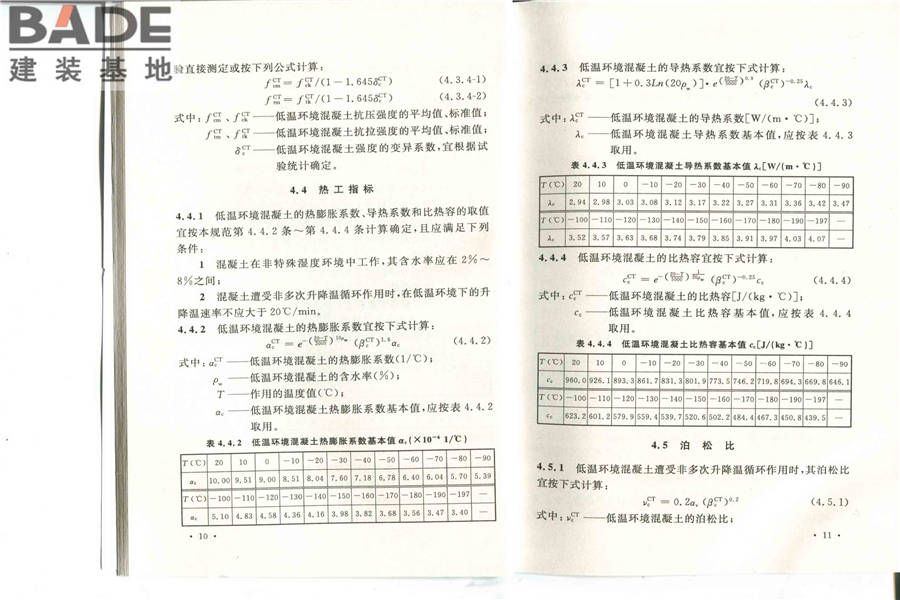 BADE
建装基地
验直接测定或按下列公式计算：
f_tm^CT = f_tk^CT/(1－1.645δ_c^CT) (4.3.4-2)
式中：f_cm^CT、f_ck^CT——低温环境混凝土抗压强度的平均值、标准值；
f_tm^CT、f_tk^CT——低温环境混凝土抗拉强度的平均值、标准值；
δ_c^CT——低温环境混凝土强度的变异系数，宜根据试
验统计确定。
4.4 热工指标
4.4.1 低温环境混凝土的热膨胀系数、导热系数和比热容的取值
宜按本规范第 4.4.2 条～第 4.4.4 条计算确定，且应满足下列
条件：
1 混凝土在非特殊湿度环境中工作，其含水率应在 2%～
8%之间；
2 混凝土遭受非多次升降温循环作用时，在低温环境下的升
降温速率不应大于 20℃/min。
4.4.2 低温环境混凝土的热膨胀系数宜按下式计算：
(4.4.2)
式中：α_c^CT——低温环境混凝土的热膨胀系数(1/℃)；
ρ_w——低温环境混凝土的含水率(%)；
T——作用的温度值(℃)；
α_c——低温环境混凝土热膨胀系数基本值，应按表 4.4.2
取用。
表 4.4.2 低温环境混凝土热膨胀系数基本值 α_c(×10⁻⁶ 1/℃)
T(℃) 20 10 0 －10 －20 －30 －40 －50 －60 －70 －80 －90
α_c 10.00 9.51 9.00 8.51 8.04 7.60 7.18 6.78 6.40 6.04 5.70 5.39
T(℃) －100 －110 －120 －130 －140 －150 －160 －170 －180 －190 －197 —
α_c 5.10 4.83 4.58 4.36 4.16 3.98 3.82 3.68 3.56 3.47 3.40 —
· 10 ·
4.4.3 低温环境混凝土的导热系数宜按下式计算：
λ_c^CT = [1＋0.3Ln(20ρ_w)]·
(4.4.3)
式中：λ_c^CT——低温环境混凝土的导热系数[W/(m·℃)]；
λ_c——低温环境混凝土导热系数基本值，应按表 4.4.3
取用。
表 4.4.3 低温环境混凝土导热系数基本值 λ_c[W/(m·℃)]
T(℃) 20 10 0 －10 －20 －30 －40 －50 －60 －70 －80 －90
λ_c 2.94 2.98 3.03 3.08 3.12 3.17 3.22 3.27 3.31 3.36 3.42 3.47
T(℃) －100 －110 －120 －130 －140 －150 －160 －170 －180 －190 －197 —
λ_c 3.52 3.57 3.63 3.68 3.74 3.79 3.85 3.91 3.97 4.03 4.07 —
4.4.4 低温环境混凝土的比热容宜按下式计算：
(4.4.4)
式中：c_c^CT——低温环境混凝土的比热容[J/(kg·℃)]；
c_c——低温环境混凝土比热容基本值，应按表 4.4.4
取用。
表 4.4.4 低温环境混凝土比热容基本值 c_c[J/(kg·℃)]
T(℃) 20 10 0 －10 －20 －30 －40 －50 －60 －70 －80 －90
c_c 960.0 926.1 893.3 861.7 831.3 801.9 773.5 746.2 719.8 694.3 669.8 646.1
T(℃) －100 －110 －120 －130 －140 －150 －160 －170 －180 －190 －197 —
c_c 623.2 601.2 579.9 559.4 539.7 520.6 502.2 484.4 467.3 450.8 439.5 —
4.5 泊松比
4.5.1 低温环境混凝土遭受非多次升降温循环作用时，其泊松比
宜按下式计算：
ν_c^CT = 0.2α_c(β_c^CT)^0.2 (4.5.1)
式中：ν_c^CT——低温环境混凝土的泊松比；
· 11 ·